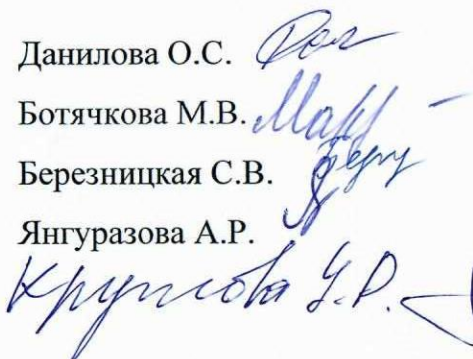 Данилова О.С.
Ботячкова М.В.
Березницкая С.В.
Янгуразова А.Р.
Круглова У.Р.